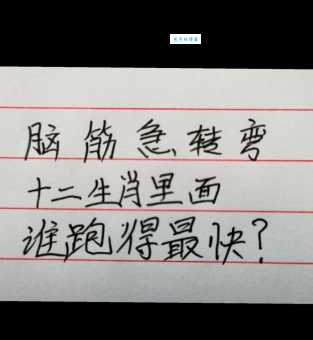 脑筋急转弯
十二生肖里面
谁跑得最快?